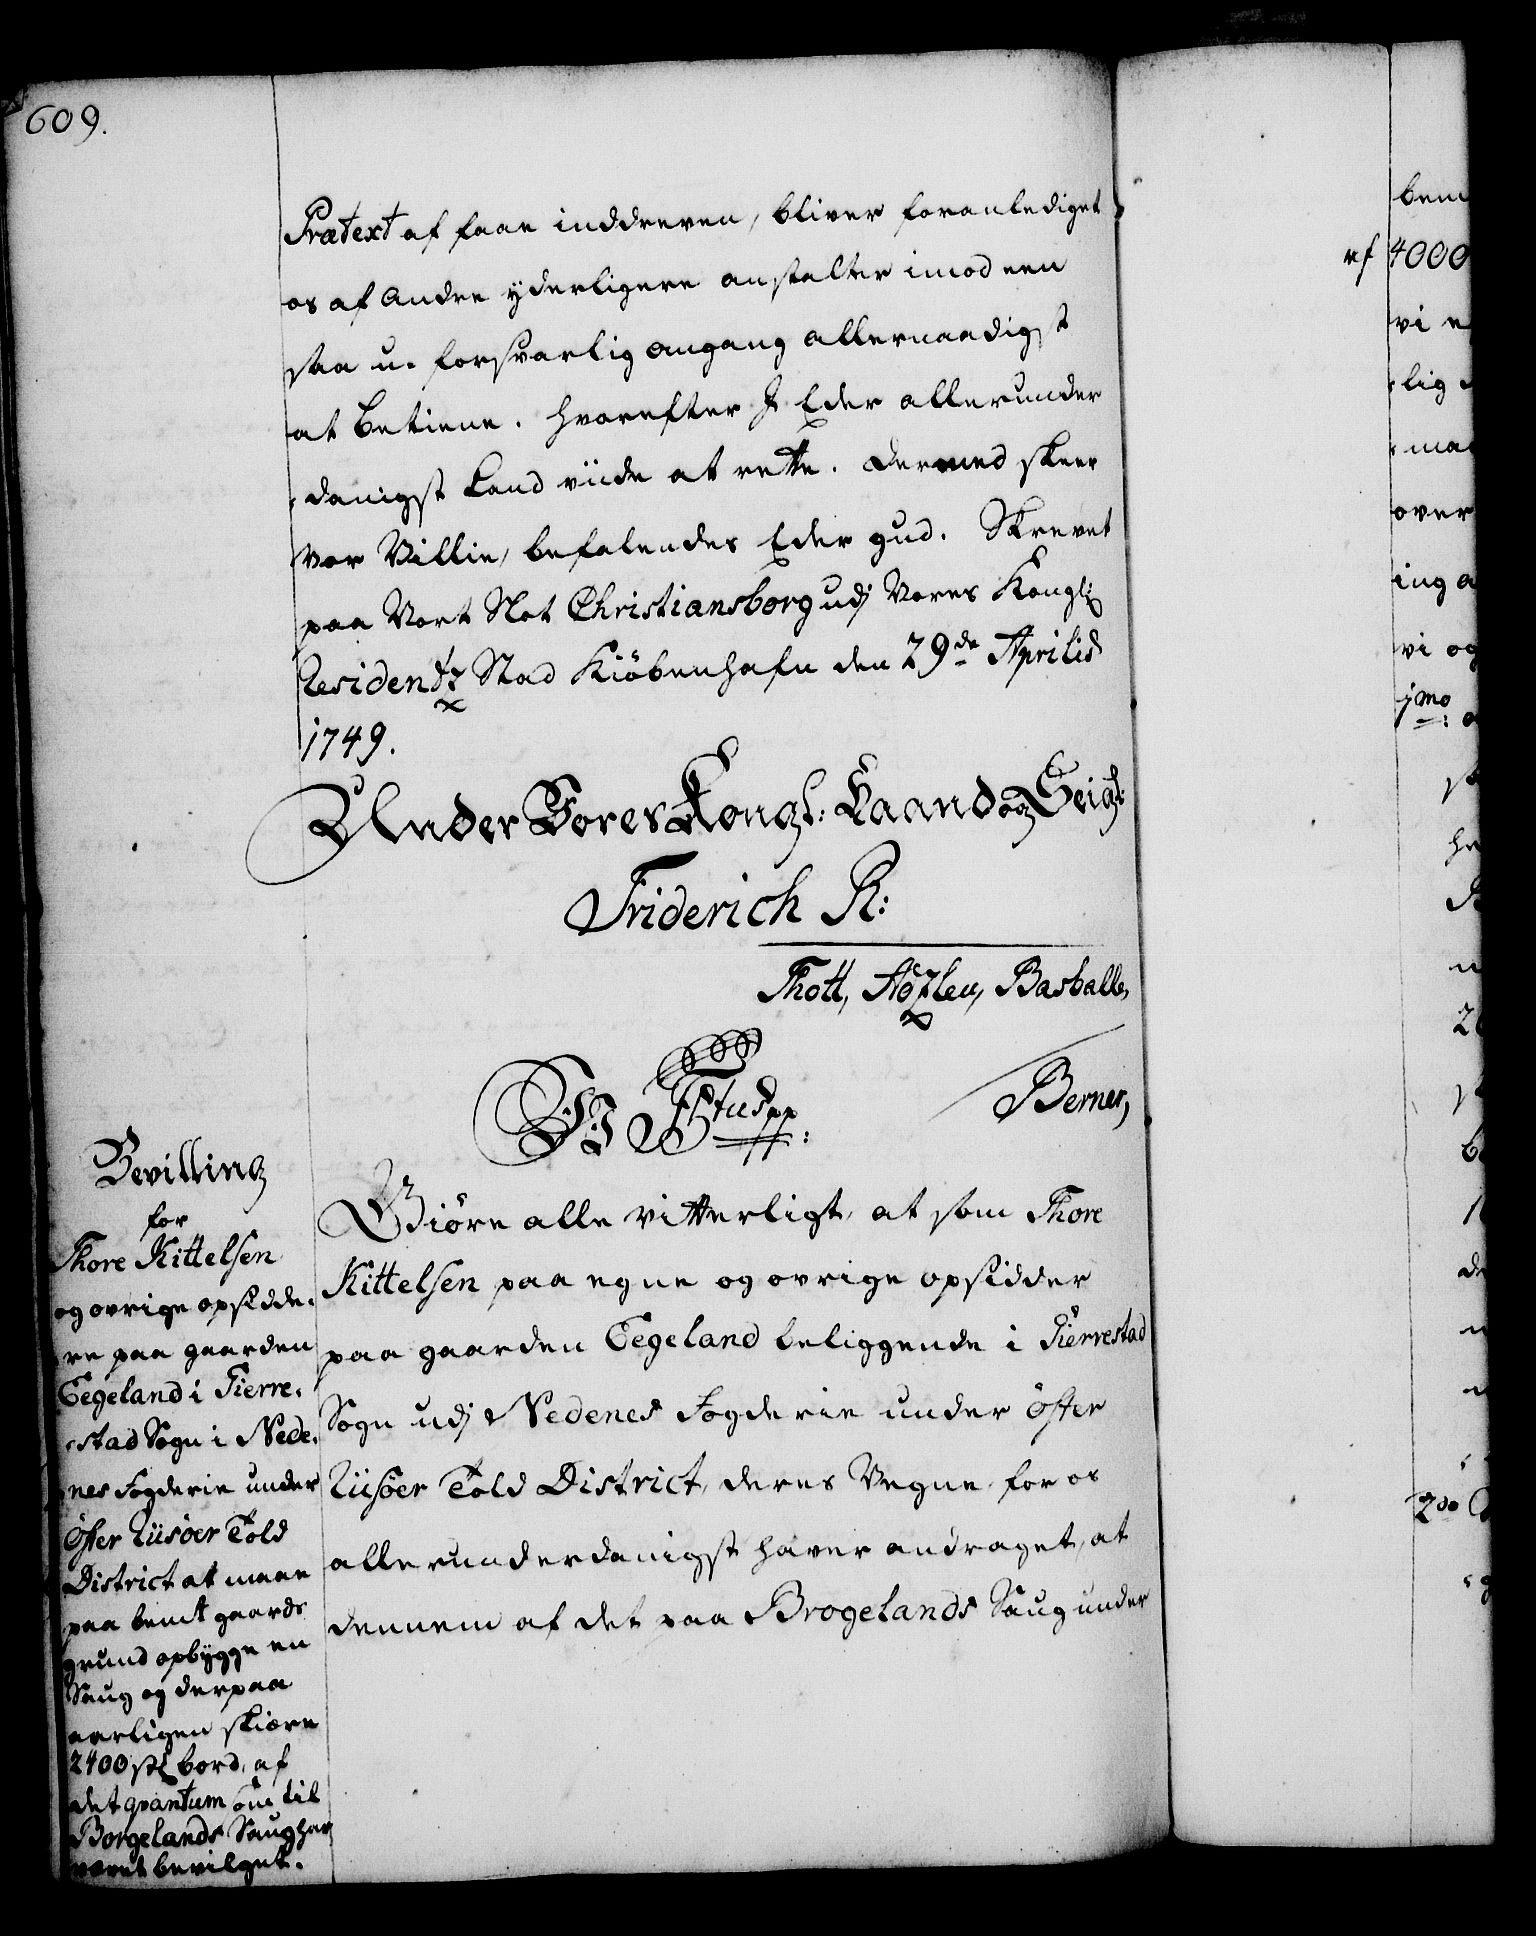 609.
Prætext af faae inddreven, bliver foranlediget
os af Andre yderligere anstalter imod een
saa u- forsvarlig omgang allernaadigst
at betiene. Hvorefter I Eder allerunder
danigst Land viide at rette. Dermed skeer
Vor Villie, befalendes Eder gud. Skrevet
paa Vort Slot Christiansborg udj Vores Kongl:
Residentz Stad Kiöbenhafn den 29de Aprilis
1749.
Under Vores Kongl: Haand og Seigl:
Friderich R:
Thott, Holtzleu, Basballe,
Berner,
F: 5tus pp:
Bevilling
for
Thore Kittelsen
og øvrige opsidde-
re paa gaarden
Eegeland i Gierre-
stad Sogn i Nede-
nes Fogderie under
Öster Riisöer Told
District at maae
paa bemt gaards
grund opbygge en
Saug og derpaa
aarligen skiære
2400 st bord, af
det qvantum som til
Borgelands Saug har
været bevilget.
Giöre alle vitterligt, at som Thore
Kittelsen paa egne og øvrige opsidder
paa gaarden Eegeland beliggende i Gierrestad
Sogn udj Nedenes Fogderie under Öster
Riisöer Told District, deres Vegne for os
allerunderdanigst haver andraget, at
dennem af det paa Brogelands Saug under
bem
rf 4000
vi
lig
over
ing
vi og
1mo
2do